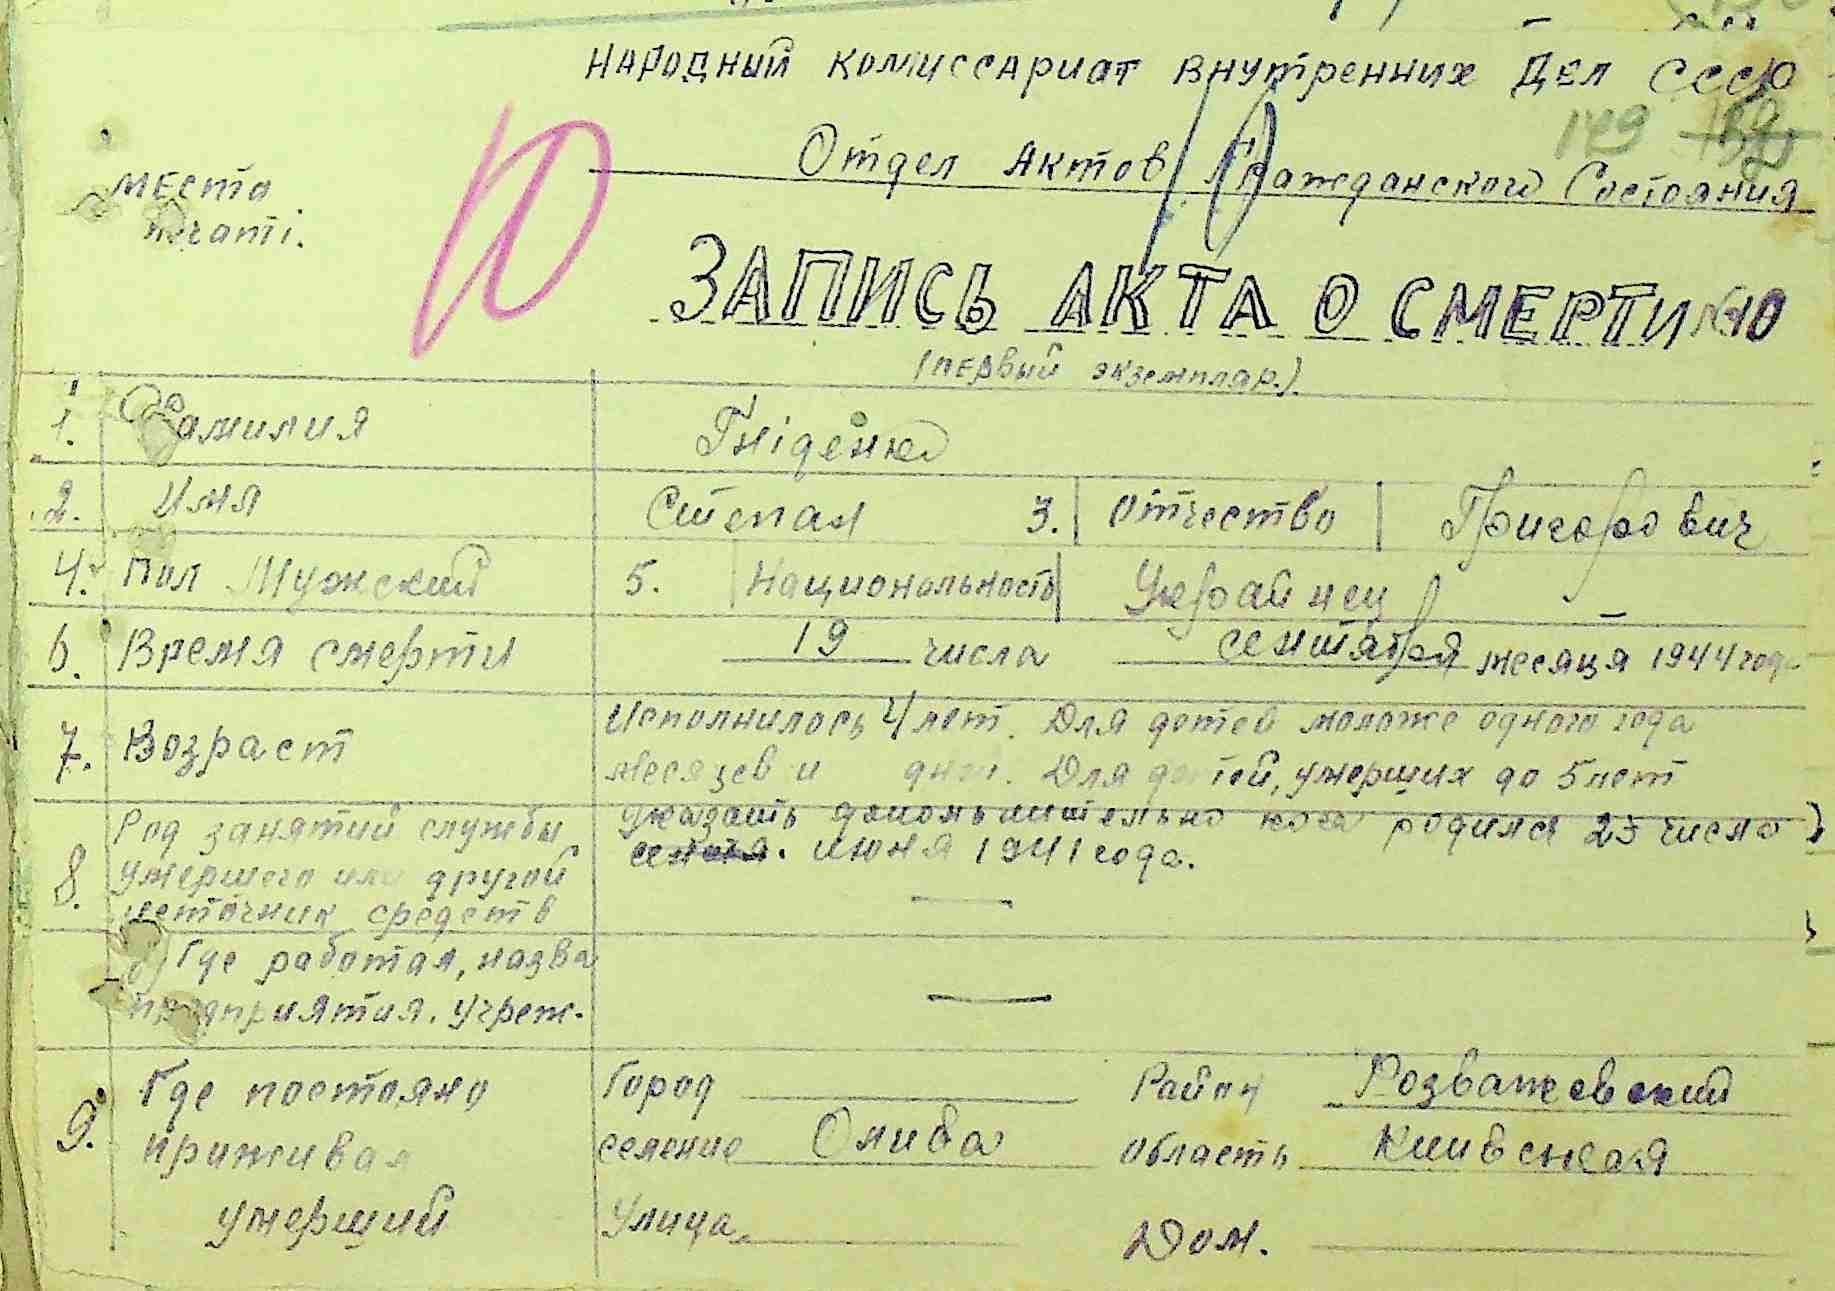 Народный комиссариат внутренних Дел СССР
179 182
Отдел Актов Гражданского Состояния
место
печати.
10
ЗАПИСЬ АКТА О СМЕРТИ №10
(первый экземпляр.)
1. Фамилия Гніденко
2. Имя Степан 3. Отчество Григорович
4. Пол Мужский 5. Национальность Украйнец
6. Время смерти 19 числа сентября месяца 1944 года
7. Возраст Исполнилось 4 лет. Для детей моложе одного года
месяцев и дней. Для детей, умерших до 5 лет
указать дополнительно когда родился 23 число
июня 1941 года.
8. Род занятий службы
умершего или другой
источник средств —
б) Где работал, назва
предприятия. учреж. —
9. Где постояно Город Район Розважевский
приживал селение Олива область Киивская
умерший Улица Дом.